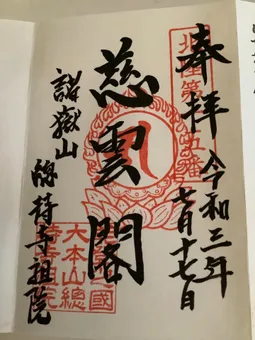 奉拝
令和三年
七月十七日
北陸第十五番
慈雲閣
國
大本山總
諸嶽山
總持寺祖院